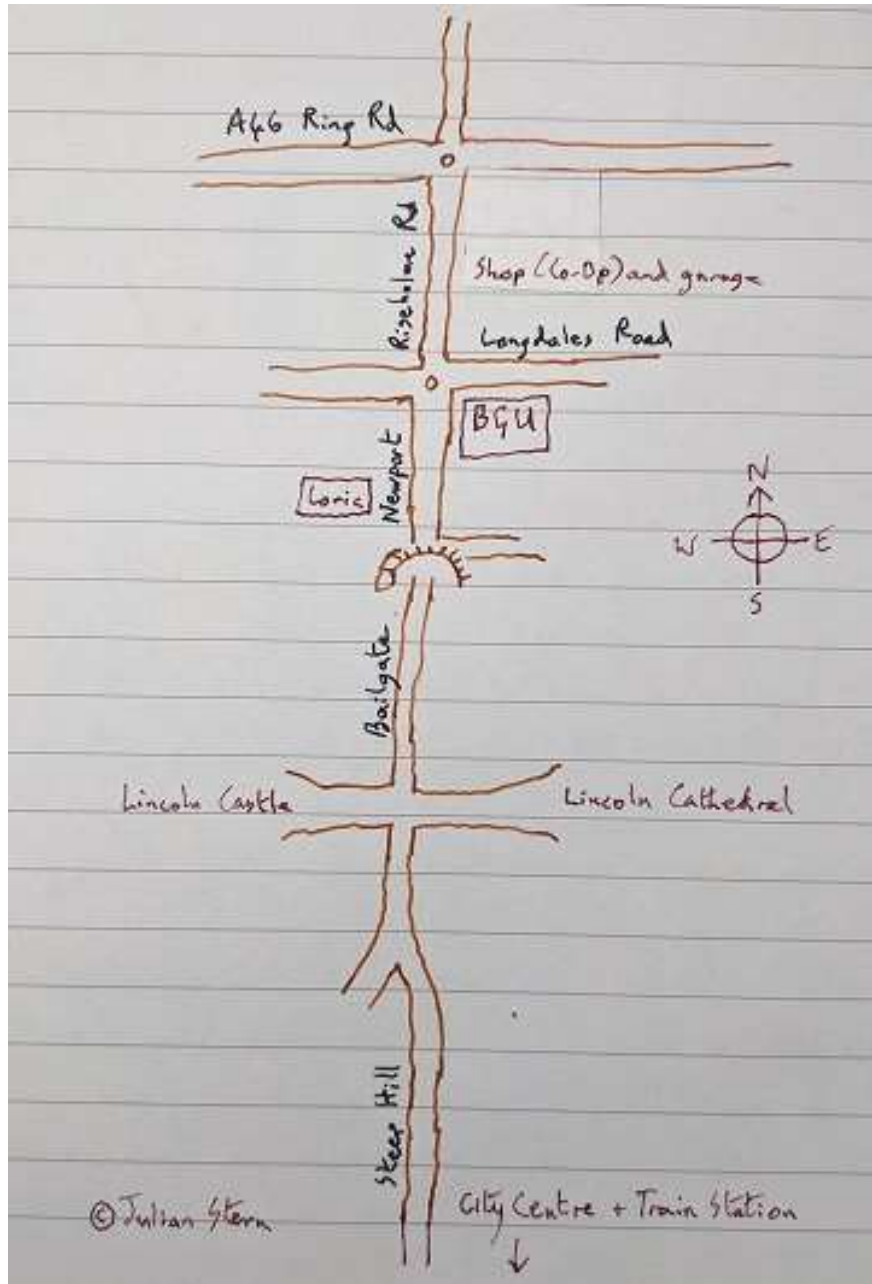 A46 Ring Rd
Riseholme Rd
Shop (Co-Op) and garage
Longdales Road
BGU
Newport
Lonic
N
W E
S
Bailgate
Lincoln Castle
Lincoln Cathedral
Steep Hill
© Julian Stern
City Centre + Train Station